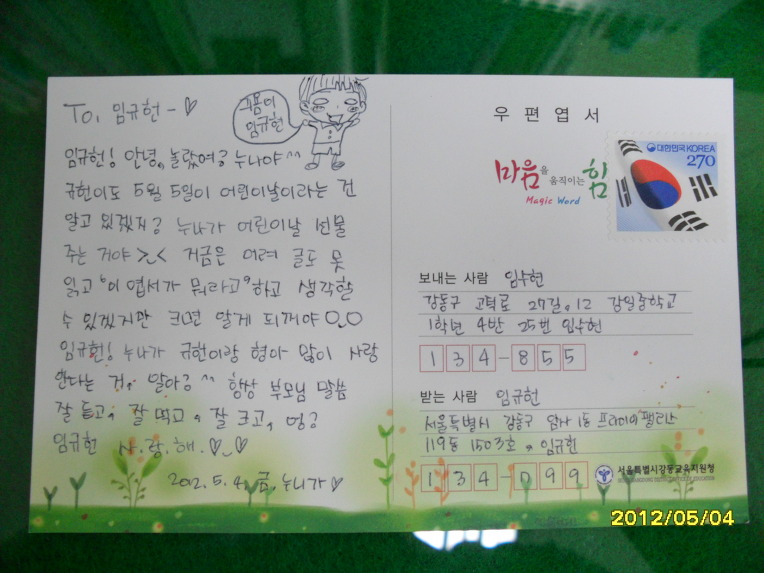 To. 임규헌 - ♡
꼬몽이
임규헌
임규헌! 안녕, 놀랐여? 누나야 ^^
규헌이도 5월 5일이 어린이날이라는 건
알고 있겠지? 누나가 어린이날 선물
주는 거야 >_< 지금은 어려 글도 못
읽고 "이 엽서가 뭐라고"하고 생각할
수 있겠지만 크면 알게 되꺼야 O_O
임규헌! 누나가 규헌이랑 형아 많이 사랑
한다는 거, 알아? ^^ 항상 부모님 말씀
잘 듣고, 잘 먹고, 잘 크고, 엉?
임규헌 사.랑.해.♡_♡
2012.5.4.금.누나가♡
우편엽서
마음을 움직이는 힘
Magic Word
대한민국 KOREA
270
보내는 사람 임수현
강동구 고덕로 27길. 12 강일중학교
1학년 4반 25번 임수현
134-855
받는 사람 임규헌
서울특별시 강동구 암사 1동 프라이어팰리스
119동 1503호, 임규헌
134-099
서울특별시강동교육지원청
2012/05/04